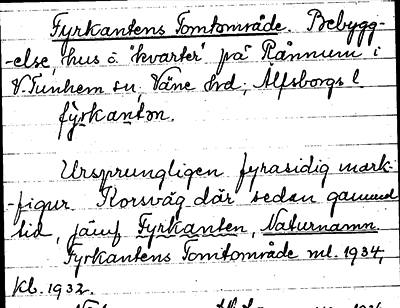 Fyrkantens Tomtområde. Bebygg-
-else, hus o. "kvarter" på Rånnum i
V. Tunhem sn, Väne hd, Älfsborgs l.
fyrkanton.
Ursprungligen fyrasidig mark-
-figur. Korsväg där sedan gammal
tid, jämf Fyrkanten, Naturnamn.
Fyrkantens Tomtområde ml. 1934,
Kl. 1932.